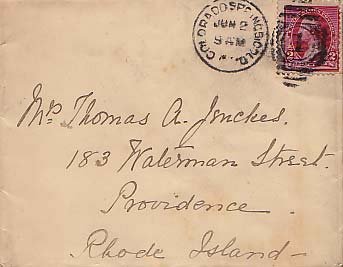 COLORADO SPRINGS, COLO.
JUN 2
9 AM
Mrs Thomas A. Jenckes.
183 Waterman Street.
Providence.
Rhode Island